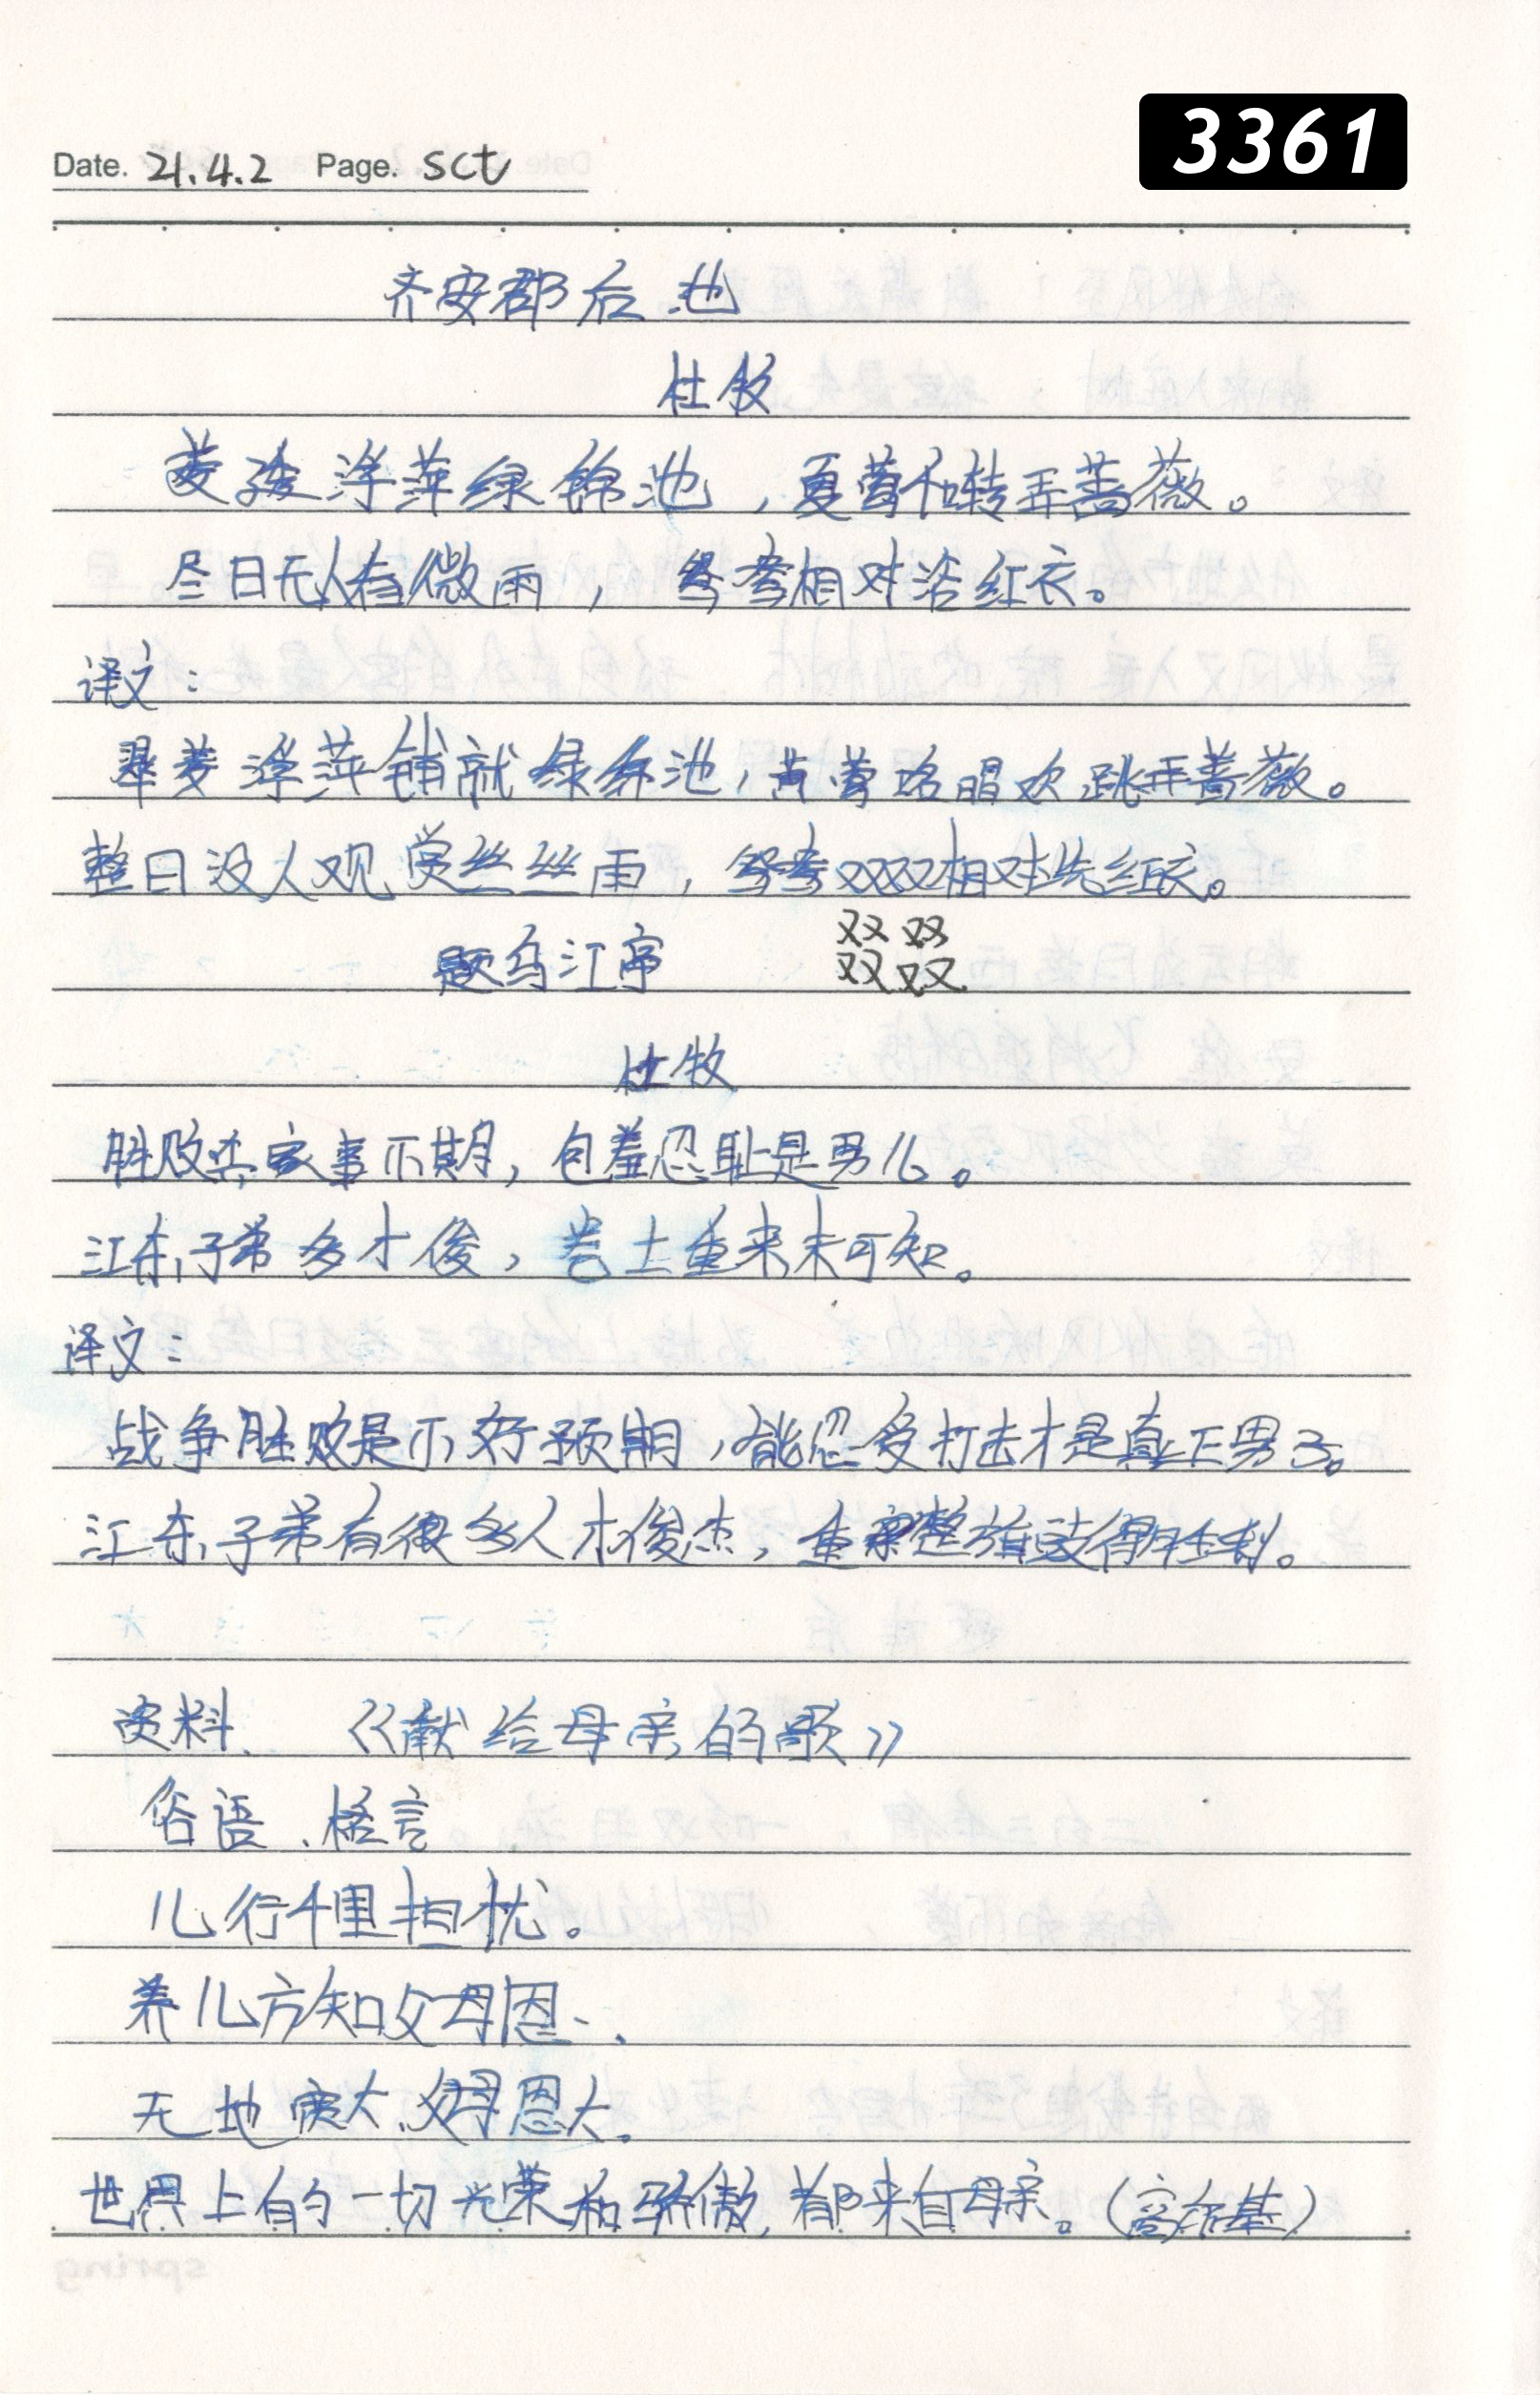 3361
Date. 21.4.2 Page. sct
齐安郡后池
杜牧
菱透浮萍绿锦池，夏莺千啭弄蔷薇。
尽日无人看微雨，鸳鸯相对浴红衣。
译文：
翠菱浮萍铺就绿锦池，黄莺啼唱欢跳弄蔷薇。
整日没人观赏丝丝雨，鸳鸯双双相对洗红衣。
双双
双双
题乌江亭
杜牧
胜败兵家事不期，包羞忍耻是男儿。
江东子弟多才俊，卷土重来未可知。
译文：
战争胜败是不好预期，能忍受打击才是真正男子。
江东子弟有很多人才俊杰，重整旗鼓得胜利。
资料、《献给母亲的歌》
俗语、格言
儿行千里担忧。
养儿方知父母恩、
天地广大、父母恩大。
世界上的一切光荣和骄傲，都来自母亲。（高尔基）